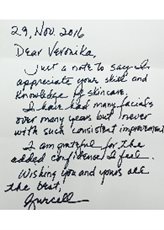 29, Nov. 2016
Dear Veronika,
just a note to say I
appreciate your skill and
knowledge of skincare.
I have had many facials
over many years but never
with such consistent improvement.
I am grateful for the
added confidence I feel.
Wishing you and yours all
the best,